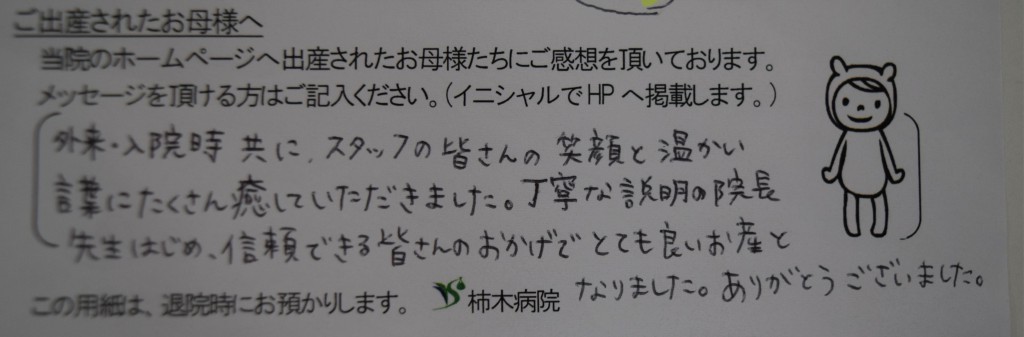 ご出産されたお母様へ
当院のホームページへ出産されたお母様たちにご感想を頂いております。
メッセージを頂ける方はご記入ください。(イニシャルでHPへ掲載します。)
外来・入院時共に、スタッフの皆さんの笑顔と温かい
言葉にたくさん癒していただきました。丁寧な説明の院長
先生はじめ、信頼できる皆さんのおかげでとても良いお産と
なりました。ありがとうございました。
この用紙は、退院時にお預かりします。 柿木病院